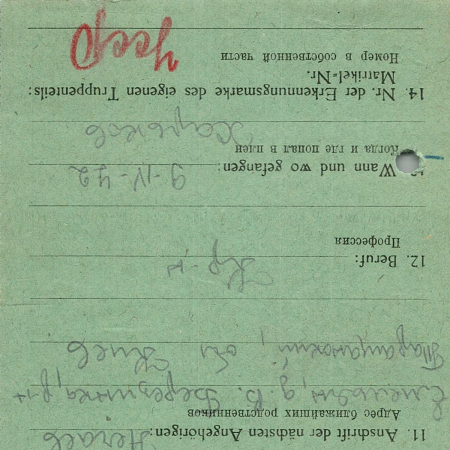 11. Anschrift der nächsten Angehörigen:
Адрес ближайших родственников
д. В. Березянка, р-н
Таращанский, обл Киев
12. Beruf: Кр-н
Профессия
13. Wann und wo gefangen: 9-IV-42
Когда и где попал в плен
Харьков
14. Nr. der Erkennungsmarke des eigenen Truppenteils:
Matrikel-Nr.
Номер в собственной части